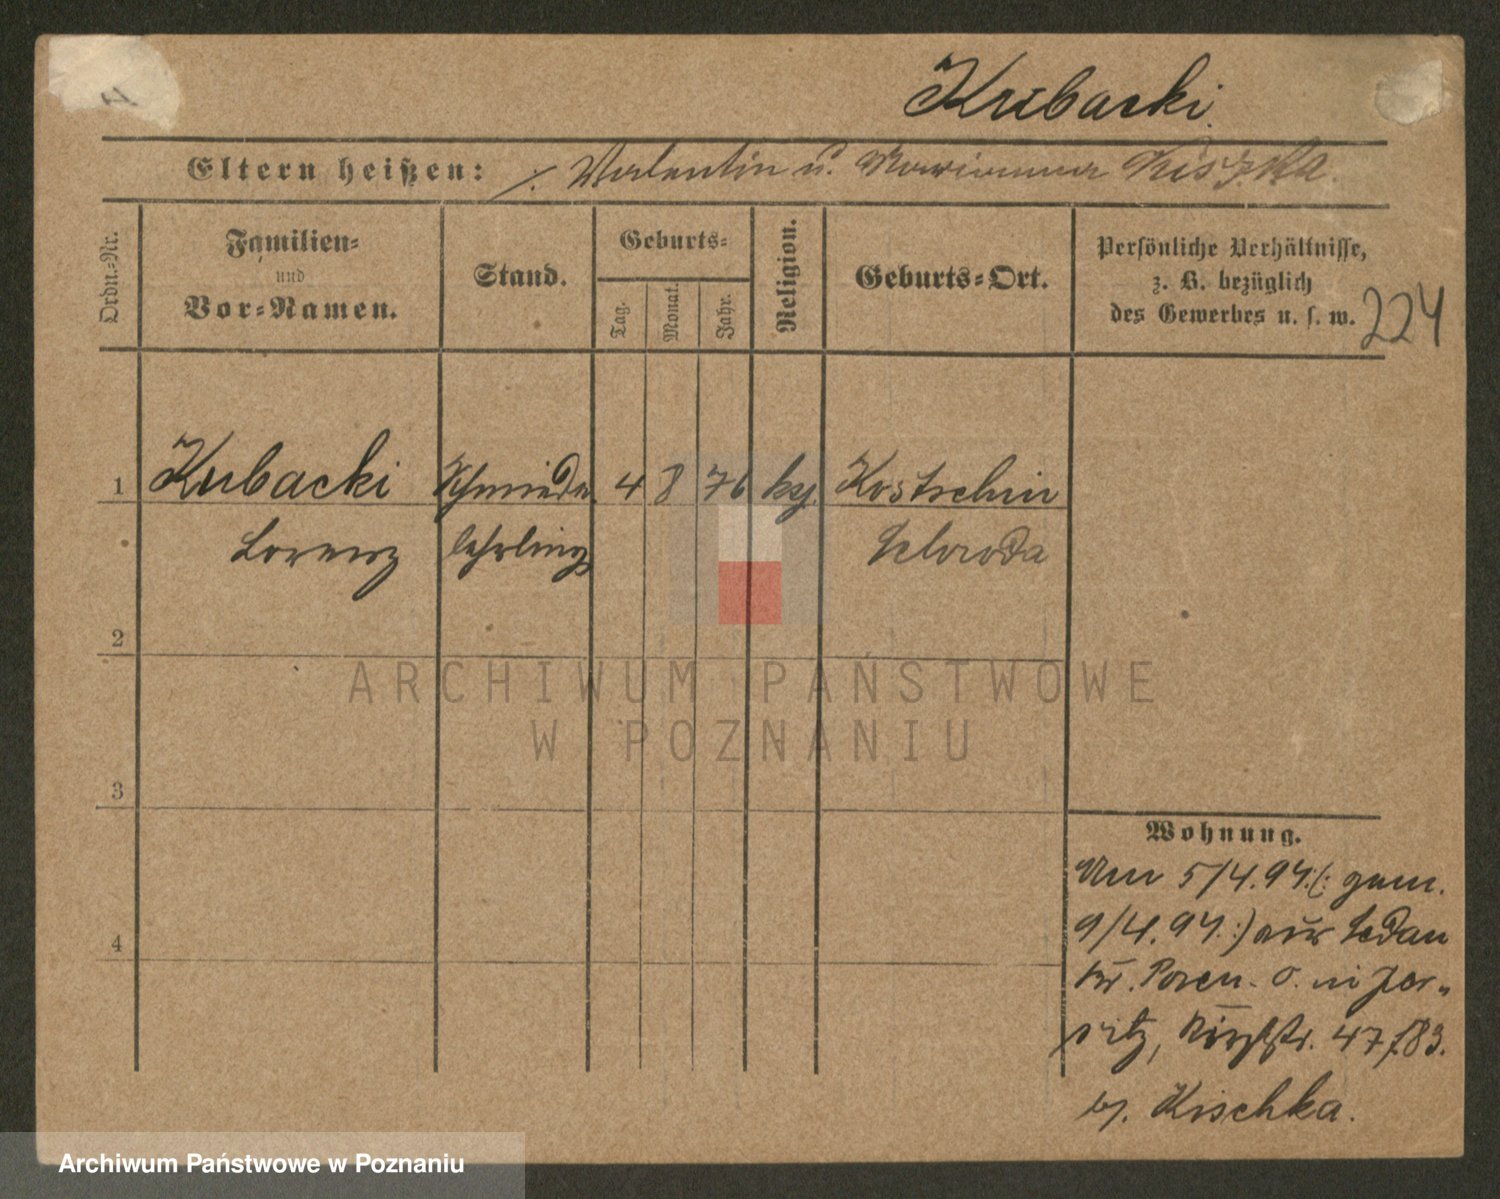 Kubacki.
Eltern heißen: ⁒ Valentin u. Marianna
Ordn.-Nr.
Familien-
und
Vor-Namen.
Stand.
Geburts-
Tag.
Monat.
Jahr.
Religion.
Geburts-Ort.
Persönliche Verhältnisse,
z. B. bezüglich
des Gewerbes u. s. w.
224
1 Kubacki Schmiede 4 8 76 kath. Kostschin
Lorenz lehrling Schroda
2
3
4
Wohnung.
Am 5/4.94.(: gem.
9/4.94.:) aus Sedan
Kr. Posen. O. in Jer-
sitz, Kirchstr. 47/83.
b. Kischka.
ARCHIWUM PAŃSTWOWE
W POZNANIU
Archiwum Państwowe w Poznaniu